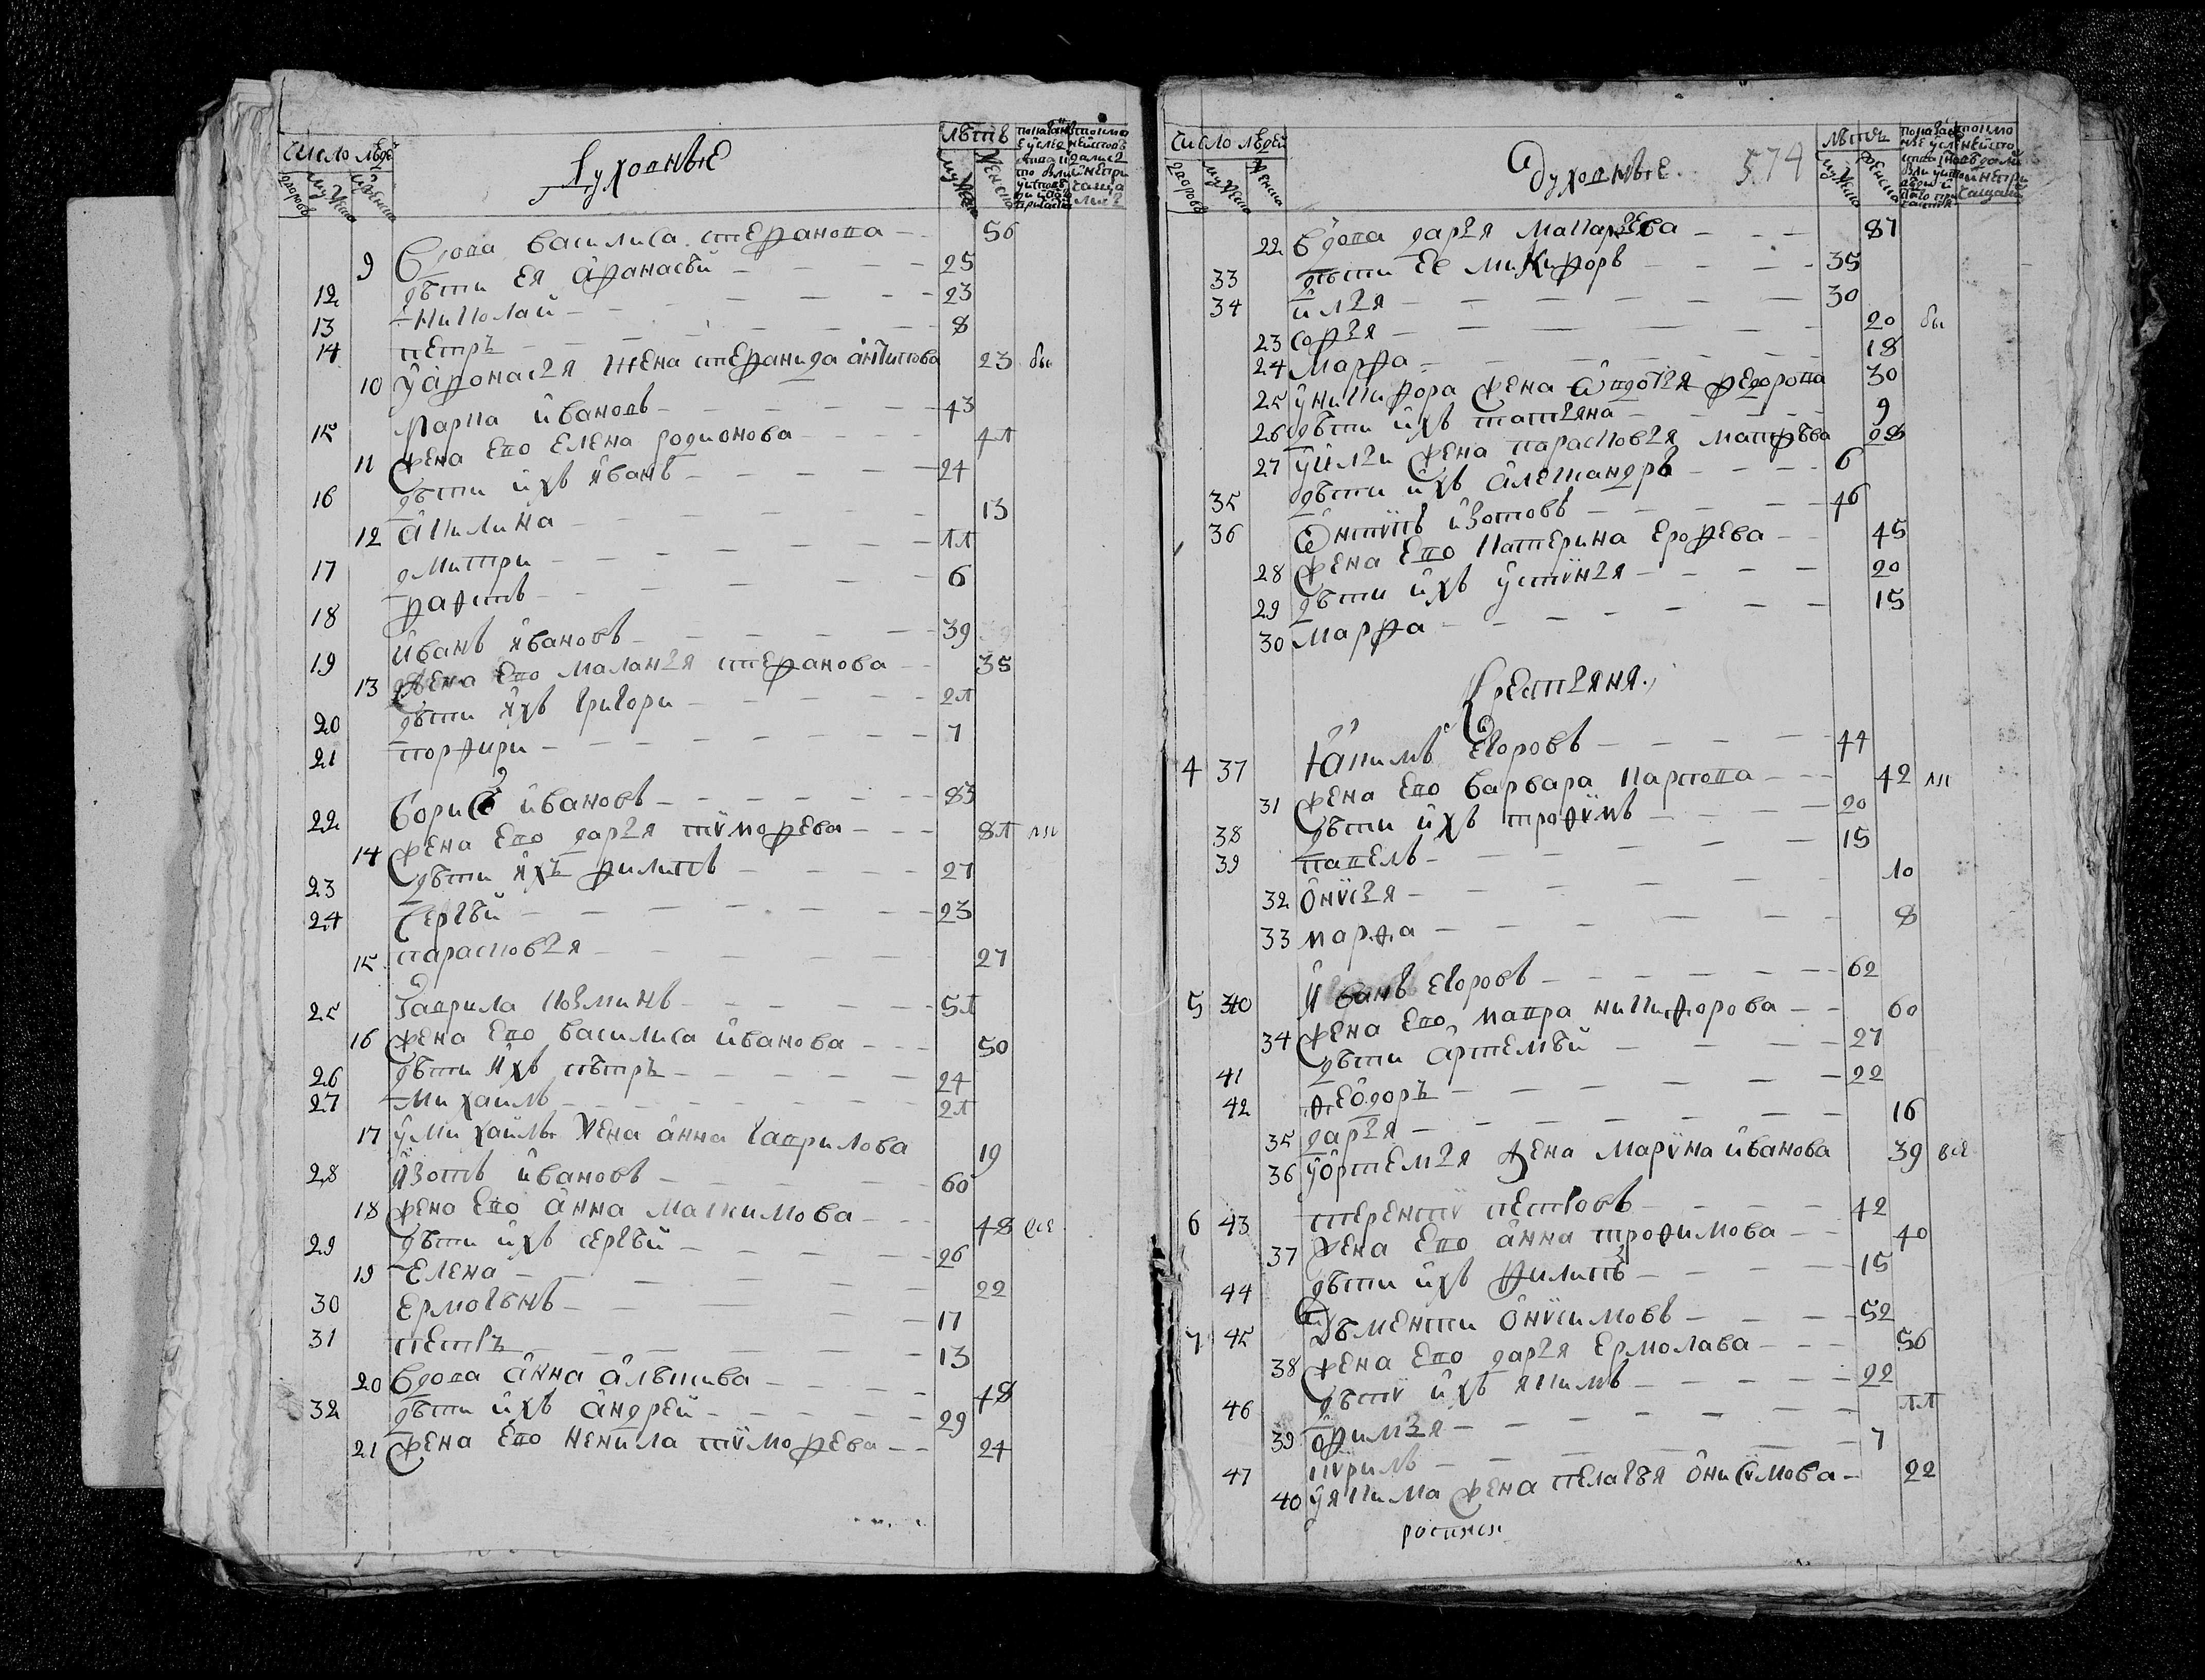 число людей
дворовъ
мужеска
женска
Духовные
лѣтъ
мужеска
женска
9 Вдова василиса степанова 56
12 дѣти ея афанасѣй 25
13 николай 23
14 петръ 8
10 у афонасия жена степанида антипова 23 бы
15 карпъ иванова 43
11 жена ево елена родионова 41
16 дѣти ихъ иванъ 24
12 акилина 13
17 дмитри 11
18 фатъ 6
19 иванъ ивановъ 39
13 жена ево маланія степанова 35
20 дѣти ихъ григори 21
21 порфири 7
22 борисъ ивановъ 83
14 жена ево дарія тимофеева 81
23 дѣти ихъ филипъ 27
24 сергѣй 23
15 парасковия 27
25 Гаврила козминъ 51
16 жена ево василиса иванова 50
26 дѣти ихъ пѣтръ 24
27 михаилъ 21
17 у михаилы жена анна гаврилова 19
28 изотъ ивановъ 60
18 жена ево анна макимова 48 все
29 дѣти ихъ сергѣй 26
19 елена 22
30 ермогѣнъ 17
31 петръ 13
20 вдова анна алѣшива 48
32 дѣти ихъ андрей 29
21 жена ево ненила тимофева 24
число людей
дворовъ
мужеска
женска
Духовные
574
лѣтъ
мужеска
женска
22 вдова дария макарева 87
33 дѣти ее микифоръ 35
34 илия 30
23 софия 20 бы
24 марфа 18
25 у никифора жена овдотия федорова 30
26 дѣти ихъ татияна 9
27 у или жена парасковия матфѣва 28
35 дѣти ихъ александръ 6
36 антипъ изотовъ 46
28 жена ево катерина ерофева 45
29 дѣти ихъ устиния 20
30 марфа 15
Крестияня
4 37 якимъ егоровъ 44
31 жена ево варвара карпова 42
38 дѣти ихъ трофимъ 20
39 павелъ 15
32 онисия 10
33 марфа 8
5 40 иванъ егоровъ 62
34 жена ево мавра никифорова 60
41 дѣти артемѣй 27
42 феодоръ 22
35 дария 16
36 у артемия жена марина иванова 39 все
6 43 терентий петровъ 42
37 жена ево анна трофимова 40
44 дѣти ихъ филипъ 15
7 45 дѣменти онисимовъ 52
38 жена ево дария ермолава 56
46 дѣти ихъ якимъ 22
39 офимия 11
47 кирилъ 7
40 у якима жена пелагѣя онисимова 22